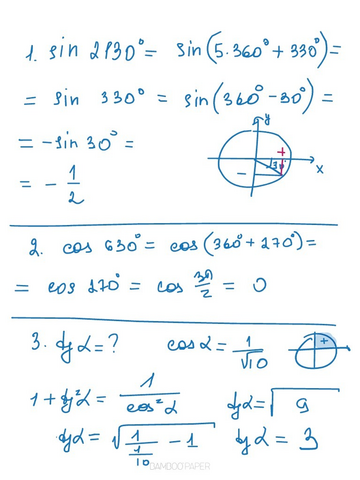 1. sin 2130° = sin(5·360° + 330°) =
= sin 330° = sin(360° - 30°) =
= -sin 30° =
= - 1/2
y
+
30°
-
x
2. cos 630° = cos(360° + 270°) =
= cos 270° = cos 3π/2 = 0
3. tg α = ? cos α = 1/√10
+
1 + tg²α = 1/cos²α tg α = √9
tg α = √(1/(1/10) - 1) tg α = 3
BAMBOO PAPER